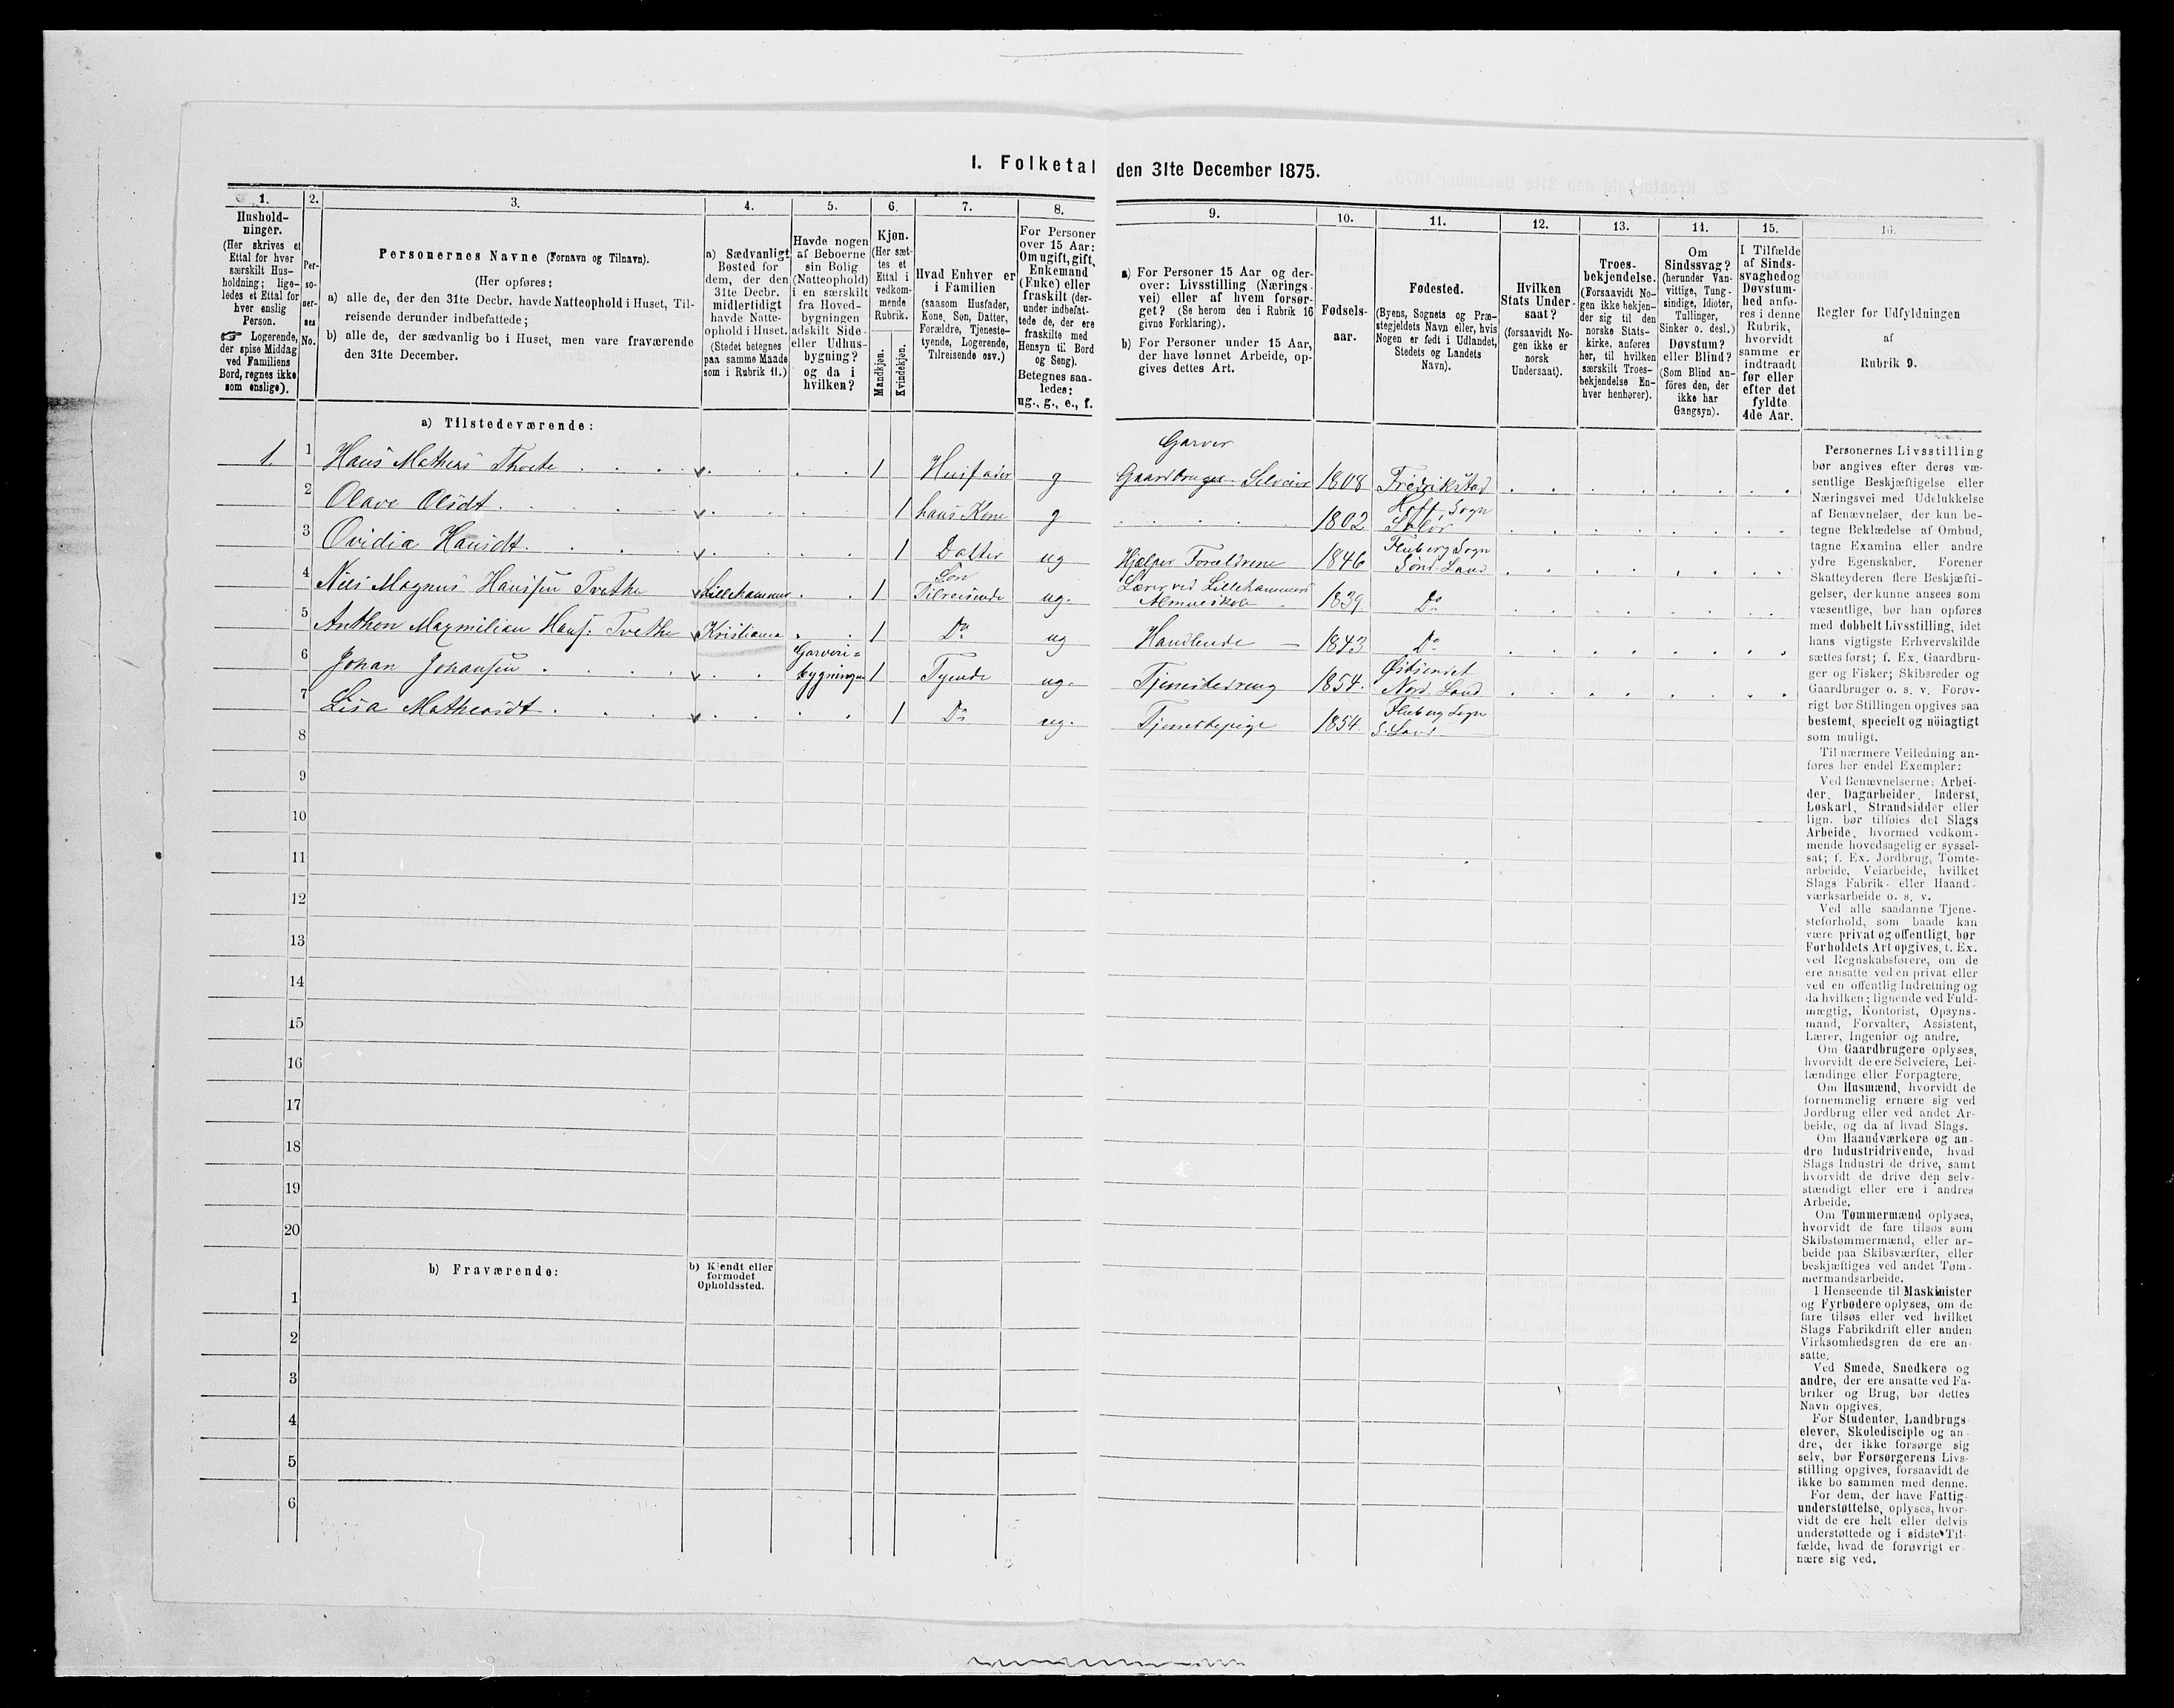 I. Folketal den 31te December 1875.
1.
Hushold-
ninger.
(Her skrives et
Ettal for hver
særskilt Hus-
holdning; lige-
ledes et Ettal for
hver enslig
Person.
☞ Logerende,
der spise Middag
ved Familiens
Bord, regnes ikke
som enslige).
2.
Per-
so-
ner-
nes
No.
3.
Personernes Navne (Fornavn og Tilnavn).
(Her opføres:
a) alle de, der den 31te Decbr. havde Natteophold i Huset, Til-
reisende derunder indbefattede;
b) alle de, der sædvanlig bo i Huset, men vare fraværende
den 31te December.
4.
a) Sædvanligt
Bosted for
dem, der den
31te Decbr.
midlertidigt
havde Natte-
ophold i Huset.
(Stedet betegnes
paa samme Maade
som i Rubrik 11.)
5.
Havde nogen
af Beboerne
sin Bolig
(Natteophold)
i en særskilt
fra Hoved-
bygningen
adskilt Side-
eller Udhus-
bygning?
og da i
hvilken?
6.
Kjøn.
(Her sæt-
tes et
Ettal i
vedkom-
mende
Rubrik.
Mandkjøn.
Kvindekjøn.
7.
Hvad Enhver er
i Familien
(saasom Husfader,
Kone, Søn, Datter,
Forældre, Tjeneste-
tyende, Logerende,
Tilreisende osv.)
8.
For Personer
over 15 Aar:
Om ugift, gift,
Enkemand
(Enke) eller
fraskilt (der-
under indbefat-
tede de, der ere
fraskilte med
Hensyn til Bord
og Seng).
Betegnes saa-
ledes:
ug., g., e., f.
9.
a) For Personer 15 Aar og der-
over: Livsstilling (Nærings-
vei) eller af hvem forsør-
get? (Se herom den i Rubrik 16
givne Forklaring).
b) For Personer under 15 Aar,
der have lønnet Arbeide, op-
gives dettes Art.
10.
Fødsels-
aar.
11.
Fødested.
(Byens, Sognets og Præ-
stegjeldets Navn eller, hvis
Nogen er født i Udlandet,
Stedets og Landets
Navn).
12.
Hvilken
Stats Under-
saat?
(forsaavidt No-
gen ikke er
norsk
Undersaat).
13.
Troes-
bekjendelse.
(Forsaavidt No-
gen ikke bekjen-
der sig til den
norske Stats-
kirke, anføres
her, til hvilken
særskilt Troes-
bekjendelse En-
hver henhører).
14.
Om
Sindssvag?
(herunder Van-
vittige, Tung-
sindige, Idioter,
Tullinger,
Sinker o. desl.)
Døvstum?
eller Blind?
(Som Blind an-
føres den, der
ikke har
Gangsyn).
15.
I Tilfælde
af Sinds-
svaghed og
Døvstum-
hed anfø-
res i denne
Rubrik,
hvorvidt
samme er
indtraadt
før eller
efter det
fyldte
4de Aar.
16.
Regler for Udfyldningen
af
Rubrik 9.
a) Tilstedeværende:
1. 1 Hans Mathias Thvete v 1 Husfader g Garver Gaardbruger Selveier 1808 Fredrikstad
2 Olave Olsdt v 1 hans Kone g 1802 Hoff Sogn Soløer
3 Ovidia Hansdt v 1 Datter ug Hjælper Forældrene 1846 Fluberg Sogn Sønd Land
4 Nils Magnus Hanssen Tvethe v Lillehammer 1 Søn Tilreisende ug. Lærer ved Lillehammers Almueskole 1839 Do
5 Anthon Maxmilian Hans. Tvethe v Kristiania 1 Do ug Handlende 1843 Do
6 Johan Johansen v Garveri= bygningen 1 Tyende ug. Tjenestedreng 1854. Østsendet Nord. Land
7 Lisa Matheasdt v 1 Do ug. Tjenestepige 1854. Fluberg Sogn S. Land
8
9
10
11
12
13
14
15
16
17
18
19
20
b) Fraværende:
b) Kjendt eller
formodet
Opholdssted.
1
2
3
4
5
6
Personernes Livsstilling
bør angives efter deres væ-
sentlige Beskjæftigelse eller
Næringsvei med Udelukkelse
af Benævnelser, der kun be-
tegne Beklædelse af Ombud,
tagne Examina eller andre
ydre Egenskaber. Forener
Skatteyderen flere Beskjæfti-
gelser, der kunne ansees som
væsentlige, bør han opføres
med dobbelt Livsstilling, idet
hans vigtigste Erhvervskilde
sættes først; f. Ex. Gaardbru-
ger og Fisker; Skibsreder og
Gaardbruger o. s. v. Forøv-
rigt bør Stillingen opgives saa
bestemt, specielt og nöiagtigt
som muligt.
Til nærmere Veiledning an-
føres her endel Exempler:
Ved Benævnelserne: Arbei-
der, Dagarbeider, Inderst,
Løskarl, Strandsidder eller
lign. bør tilføies det Slags
Arbeide, hvormed vedkom-
mende hovedsagelig er syssel-
sat; f. Ex. Jordbrug, Tomte-
arbeide, Veiarbeide, hvilket
Slags Fabrik- eller Haand-
værksarbeide o. s. v.
Ved alle saadanne Tjene-
steforhold, som baade kan
være privat og offentligt, bør
Forholdets Art opgives, t. Ex.
ved Regnskabsførere, om de
ere ansatte ved en privat eller
ved en offentlig Indretning og
da hvilken; lignende ved Fuld-
mægtig, Kontorist, Opsyns-
mand, Forvalter, Assistent,
Lærer, Ingeniør og andre.
Om Gaardbrugere oplyses,
hvorvidt de ere Selveiere, Lei-
lændinge eller Forpagtere.
Om Husmænd, hvorvidt de
fornemmelig ernære sig ved
Jordbrug eller ved andet Ar-
beide, og da af hvad Slags.
Om Haandværkere og an-
dre Industridrivende, hvad
Slags Industri de drive, samt
hvorvidt de drive den selv-
stændigt eller ere i andres
Arbeide.
Om Tømmermænd oplyses,
hvorvidt de fare tilsøs som
Skibstømmermænd, eller ar-
beide paa Skibsværfter, eller
beskjæftiges ved andet Tøm-
mermandsarbeide.
I Henseende til Maskinister
og Fyrbødere oplyses, om de
fare tilsøs eller ved hvilket
Slags Fabrikdrift eller anden
Virksomhedsgren de ere an-
satte.
Ved Smede, Snedkere og
andre, der ere ansatte ved Fa-
briker og Brug, bør dettes
Navn opgives.
For Studenter, Landbrugs-
elever, Skoledisciple og an-
dre, der ikke forsørge sig
selv, bør Forsørgerens Livs-
stilling opgives, forsaavidt de
ikke bo sammen med denne.
For dem, der have Fattig-
understøttelse, oplyses, hvor-
vidt de ere helt eller delvis
understøttede og i sidste Til-
fælde, hvad de forøvrigt er-
nære sig ved.